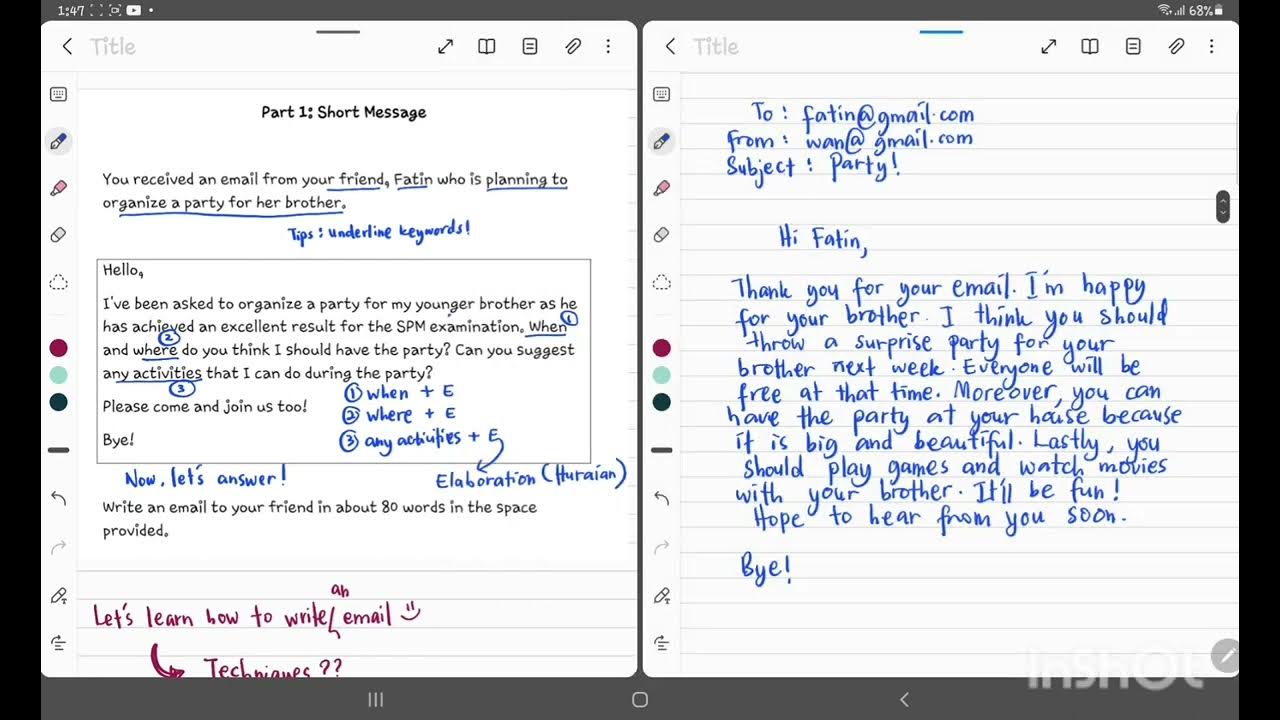 1:47
68%
Title
Part 1: Short Message
You received an email from your friend, Fatin who is planning to
organize a party for her brother.
Tips: underline keywords!
Hello,
I've been asked to organize a party for my younger brother as he
has achieved an excellent result for the SPM examination. When
①
②
and where do you think I should have the party? Can you suggest
any activities that I can do during the party?
③
① when + E
Please come and join us too!
② where + E
Bye!
③ any activities + E
Now, let's answer!
Elaboration (Huraian)
Write an email to your friend in about 80 words in the space
provided.
an
Let's learn how to write email
Techniques ??
Title
To : fatin@gmail.com
From : wan@gmail.com
Subject : Party!
Hi Fatin,
Thank you for your email. I'm happy
for your brother. I think you should
throw a surprise party for your
brother next week. Everyone will be
free at that time. Moreover, you can
have the party at your house because
it is big and beautiful. Lastly, you
should play games and watch movies
with your brother. It'll be fun!
Hope to hear from you soon.
Bye!
InShOt